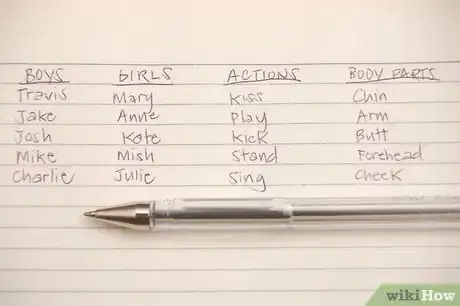 BOYS GIRLS ACTIONS BODY PARTS
Travis Mary Kiss Chin
Jake Anne Play Arm
Josh Kate Kick Butt
Mike Mish Stand Forehead
Charlie Julie Sing Cheek
wikiHow